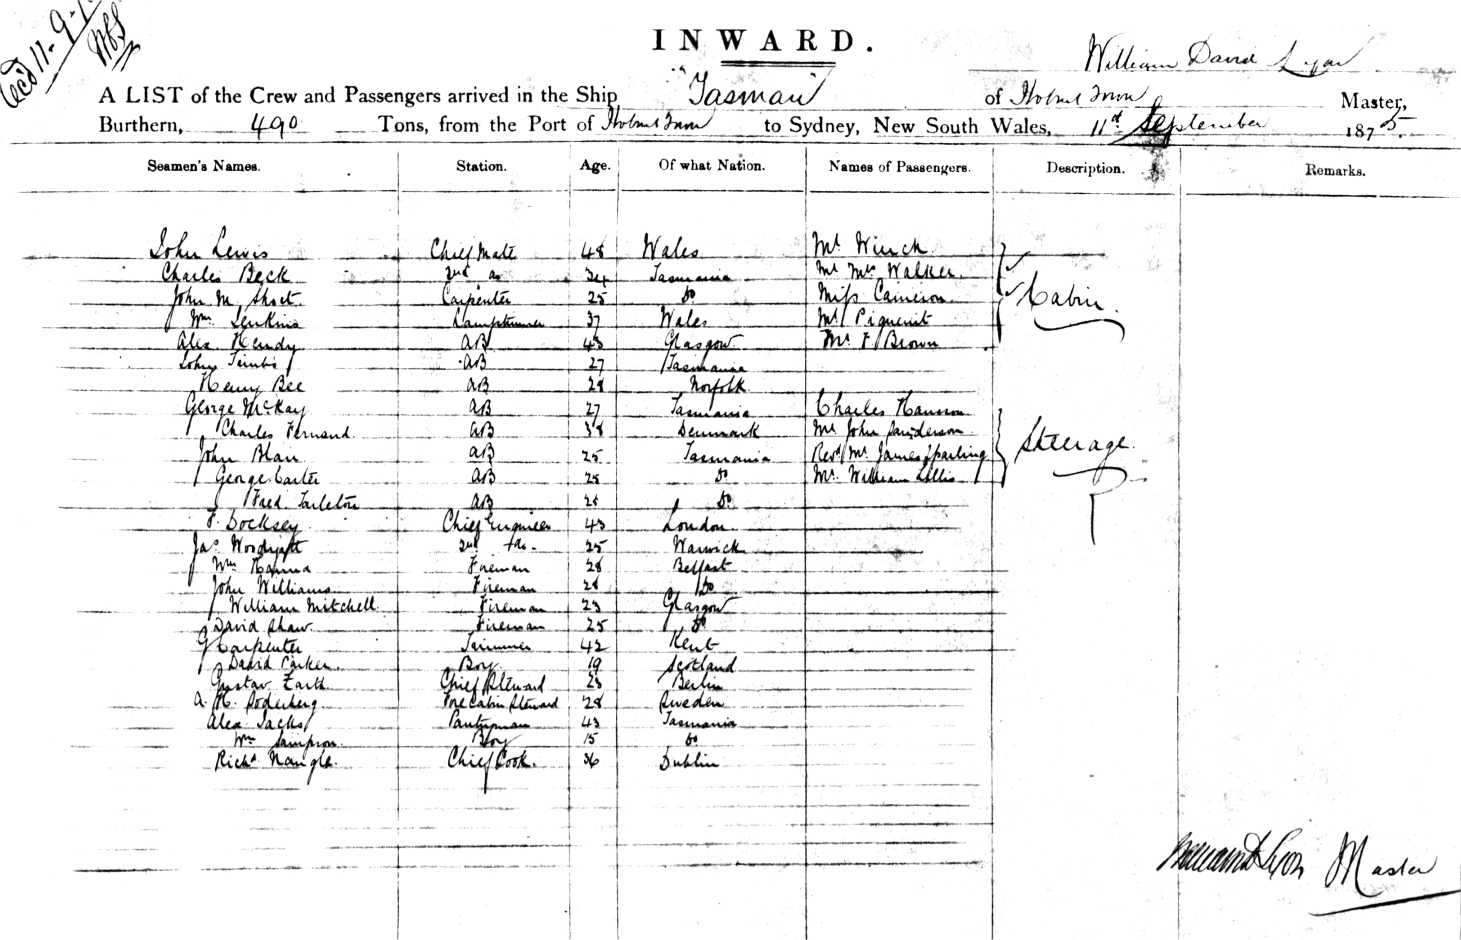 Rec'd 11-9-
INWARD.
William David Lyon
A LIST of the Crew and Passengers arrived in the Ship "Tasman" of Hobart Town Master,
Burthern, 490 Tons, from the Port of Hobart Town to Sydney, New South Wales, 11th September 1875.
Seamen's Names. Station. Age. Of what Nation. Names of Passengers. Description. Remarks.
John Lewis Chief Mate 48 Wales Mr Winch
Charles Beck 2nd do 34 Tasmania Mr Mrs Walker
John M. Short Carpenter 25 Do Miss Cameron Cabin
Wm Jenkins Lamptrimmer 37 Wales Mr Piguenit
Alex Hendy AB 43 Glasgow Mr F Brown
John AB 27 Tasmania
Henry Bee AB 28 Norfolk
George McKay AB 27 Tasmania Charles Hanson
Charles Fernand AB 38 Denmark Mr John Sanderson
John Blair AB 25 Tasmania Revd Mr James Sparling Steerage
George Carter AB 25 Do Mr William Lillis
Fred Tarleton AB 28 Do
F. Docksey Chief Engineer 43 London
Jas Woodyatt 2nd do. 25 Warwick
Wm Hanna Fireman 28 Belfast
John Williams Fireman 28 Do
William Mitchell Fireman 23 Glasgow
David Shaw Fireman 25 Do
G Carpenter Trimmer 42 Kent
David Parker Boy 19 Scotland
Gustav Chief Steward 23 Berlin
A. H. Soderberg Fore Cabin Steward 28 Sweden
Alex Jacks Pantryman 43 Tasmania
Wm Sampson Boy 15 Do
Richd Nangle Chief Cook. 36 Dublin
William D Lyon Master